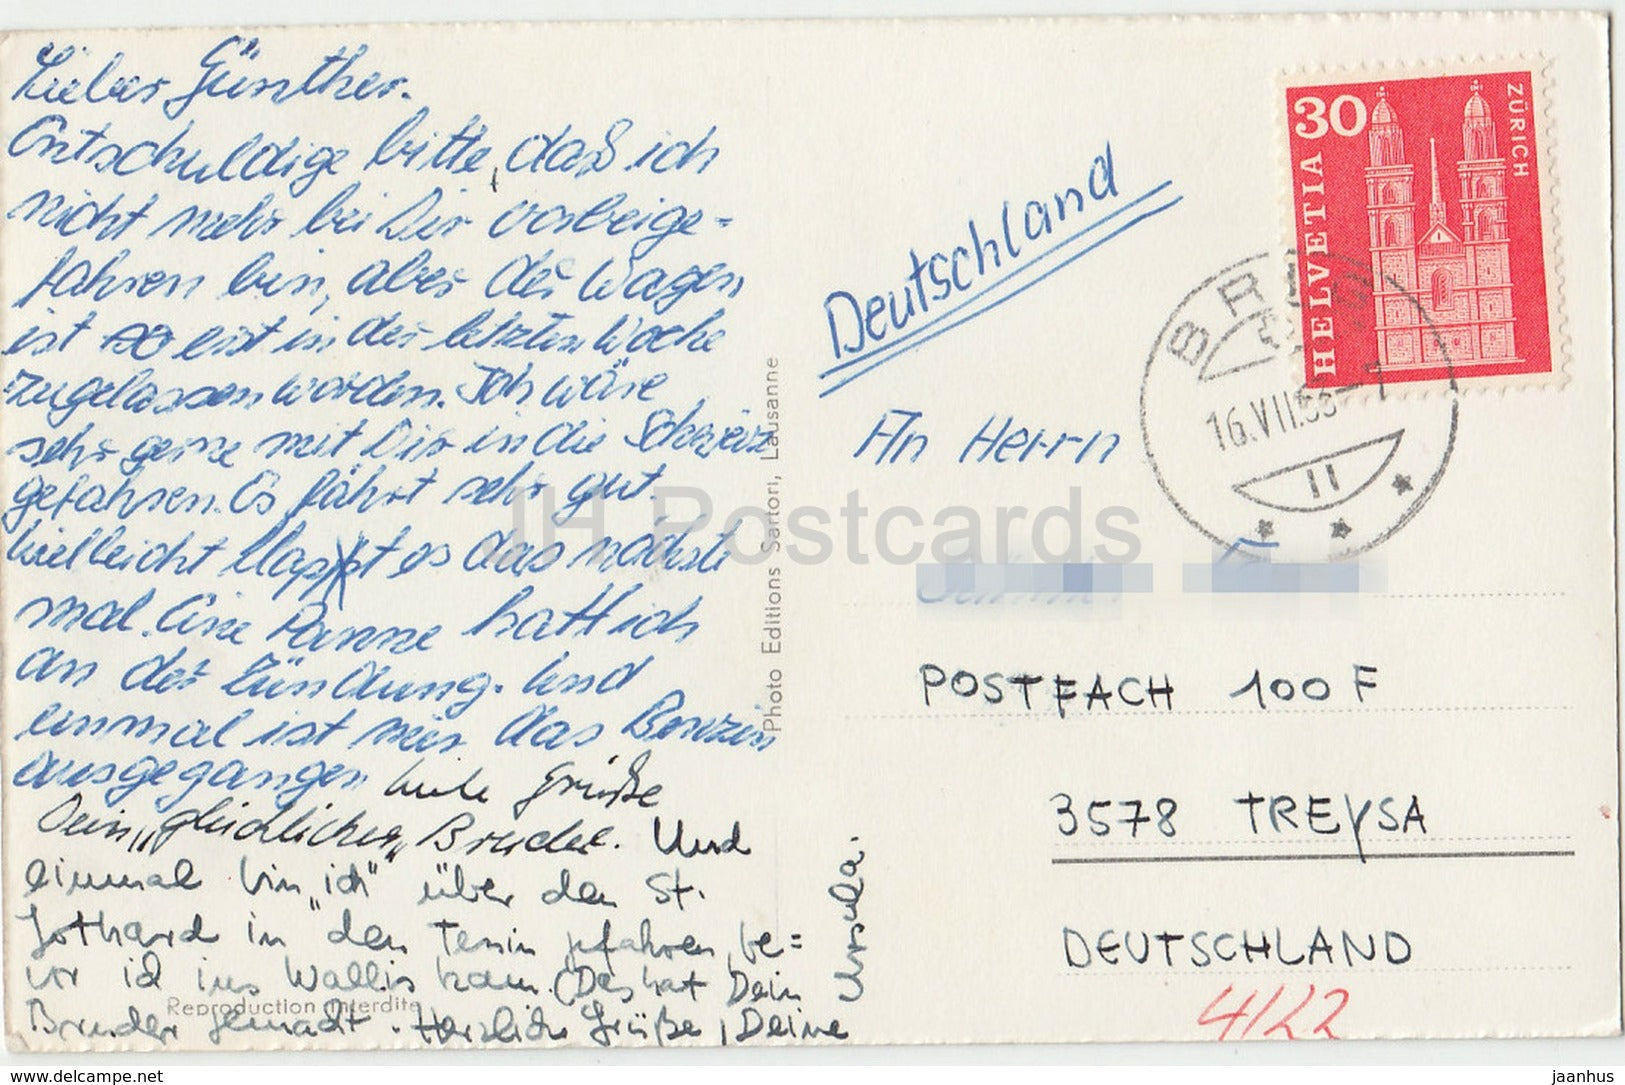 Lieber Günther.
Entschuldige bitte, daß ich
nicht mehr bei Dir vorbeige=
fahren bin, aber der Wagen
ist erst in der letzten Woche
zugelassen worden. Ich wäre
sehr gerne mit Dir in die Schweiz
gefahren. Es fährt sehr gut.
Vielleicht klappt es das nächste
mal. Eine Panne hatt ich
an der Zündung. Und
einmal ist mir das Benzin
ausgegangen Grüße
Dein „ " Bruder. Und
einmal bin „ich" über den St.
Gotthard in den Tessin gefahren, be=
vor ich ins Wallis kam. (Das hat Dein
Bruder gemacht. Herzliche Grüße, Deine
Ursula.
Reproduction interdite
Photo Editions Sartori, Lausanne
Deutschland
30
HELVETIA
ZÜRICH
BRIG
16.VII.
An Herrn
POSTFACH 100 F
3578 TREYSA
DEUTSCHLAND
4/22
JH Postcards
https://www.delcampe.net
jaanhus